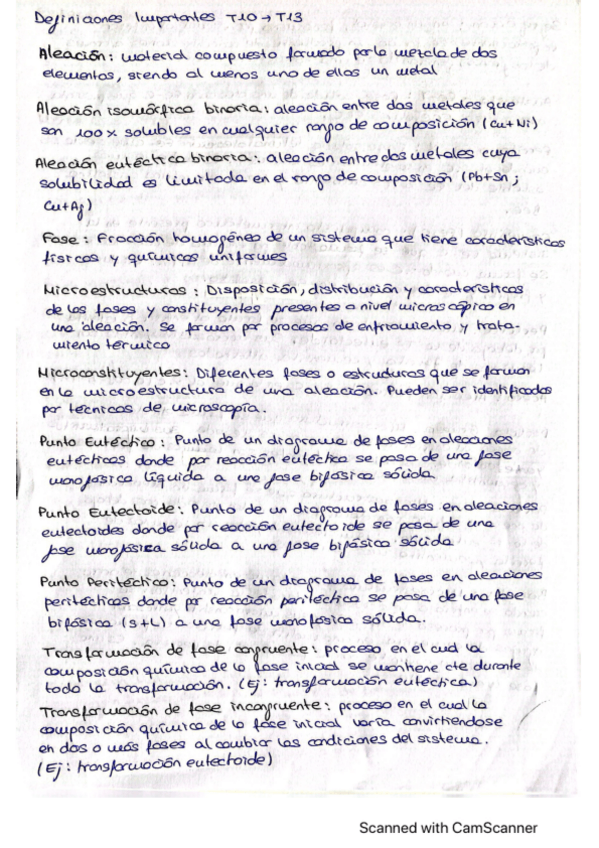 Definiciones Importantes T10 → T13
Aleación: material compuesto formado por la mezcla de dos
elementos, siendo al menos uno de ellos un metal
Aleación isomórfica binaria: aleación entre dos metales que
son 100% solubles en cualquier rango de composición (Cu+Ni)
Aleación eutéctica binaria: aleación entre dos metales cuya
solubilidad es limitada en el rango de composición (Pb+Sn;
Cu+Ag)
Fase: Fracción homogénea de un sistema que tiene características
físicas y químicas uniformes
Microestructuras: Disposición, distribución y características
de las fases y constituyentes presentes a nivel microscópico en
una aleación. Se forman por procesos de enfriamiento y trata-
miento térmico
Microconstituyentes: Diferentes fases o estructuras que se forman
en la microestructura de una aleación. Pueden ser identificados
por técnicas de microscopía.
Punto Eutéctico: Punto de un diagrama de fases en aleaciones
eutécticas donde por reacción eutéctica se pasa de una fase
monofásica líquida a una fase bifásica sólida
Punto Eutectoide: Punto de un diagrama de fases en aleaciones
eutectoides donde por reacción eutectoide se pasa de una
fase monofásica sólida a una fase bifásica sólida
Punto Peritéctico: Punto de un diagrama de fases en aleaciones
peritécticas donde por reacción peritéctica se pasa de una fase
bifásica (S+L) a una fase monofásica sólida.
Transformación de fase congruente: proceso en el cual la
composición química de la fase inicial se mantiene cte durante
toda la transformación. (Ej: transformación eutéctica)
Transformación de fase incongruente: proceso en el cual la
composición química de la fase inicial varía convirtiendose
en dos o más fases al cambiar las condiciones del sistema.
(Ej: transformación eutectoide)
Scanned with CamScanner